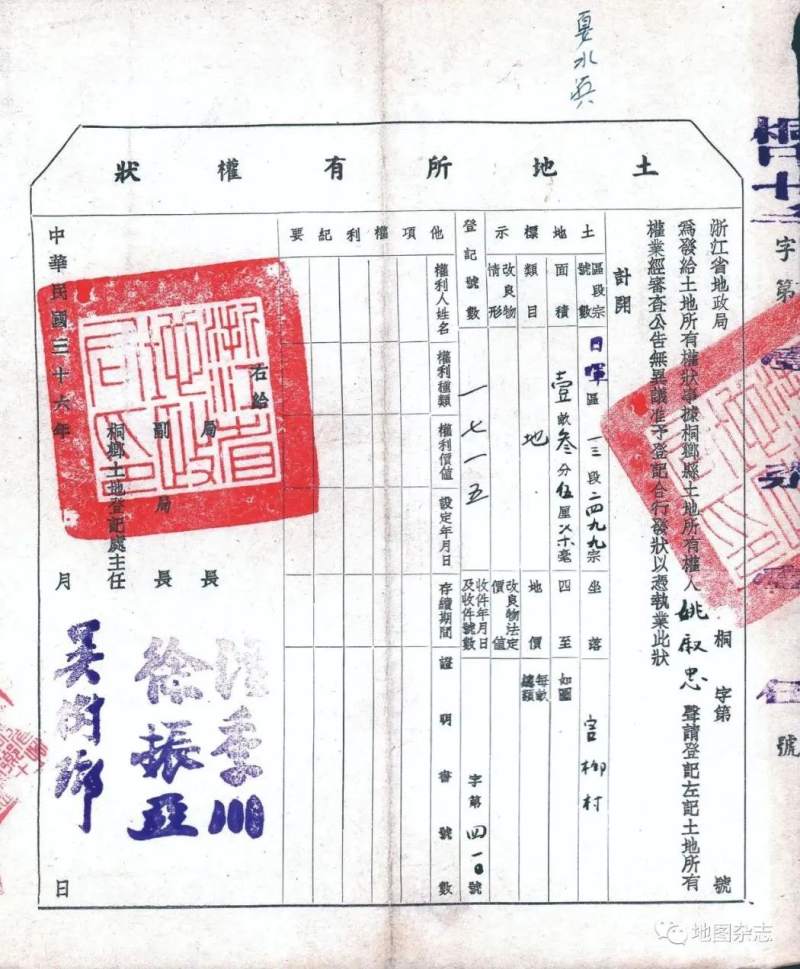 夏水英
土地所有權狀
浙江省地政局
桐字第
號
為發給土地所有權狀事據桐鄉縣土地所有權人姚叔忠聲請登記左記土地所有
權業經審查公告無異議准予登記合行發狀以憑執業此狀
計開
土地標示
區段宗號數
日暉區一三段二四九九宗
坐落
面積
壹畝叁分伍厘
毫
四至
如圖
類目
地
地價
每畝
總額
改良物情形
改良物法定價值
登記號數
一七一五
收件年月日及收件號數
字第四一〇號
他項權利記要
權利人姓名
權利種類
權利價值
設定年月日
存續期間
證明書號數
右給
浙江省地政局印
局長
副局長
徐振亞
桐鄉土地登記處主任
中華民國三十六年
月
日
字第
號
地图杂志